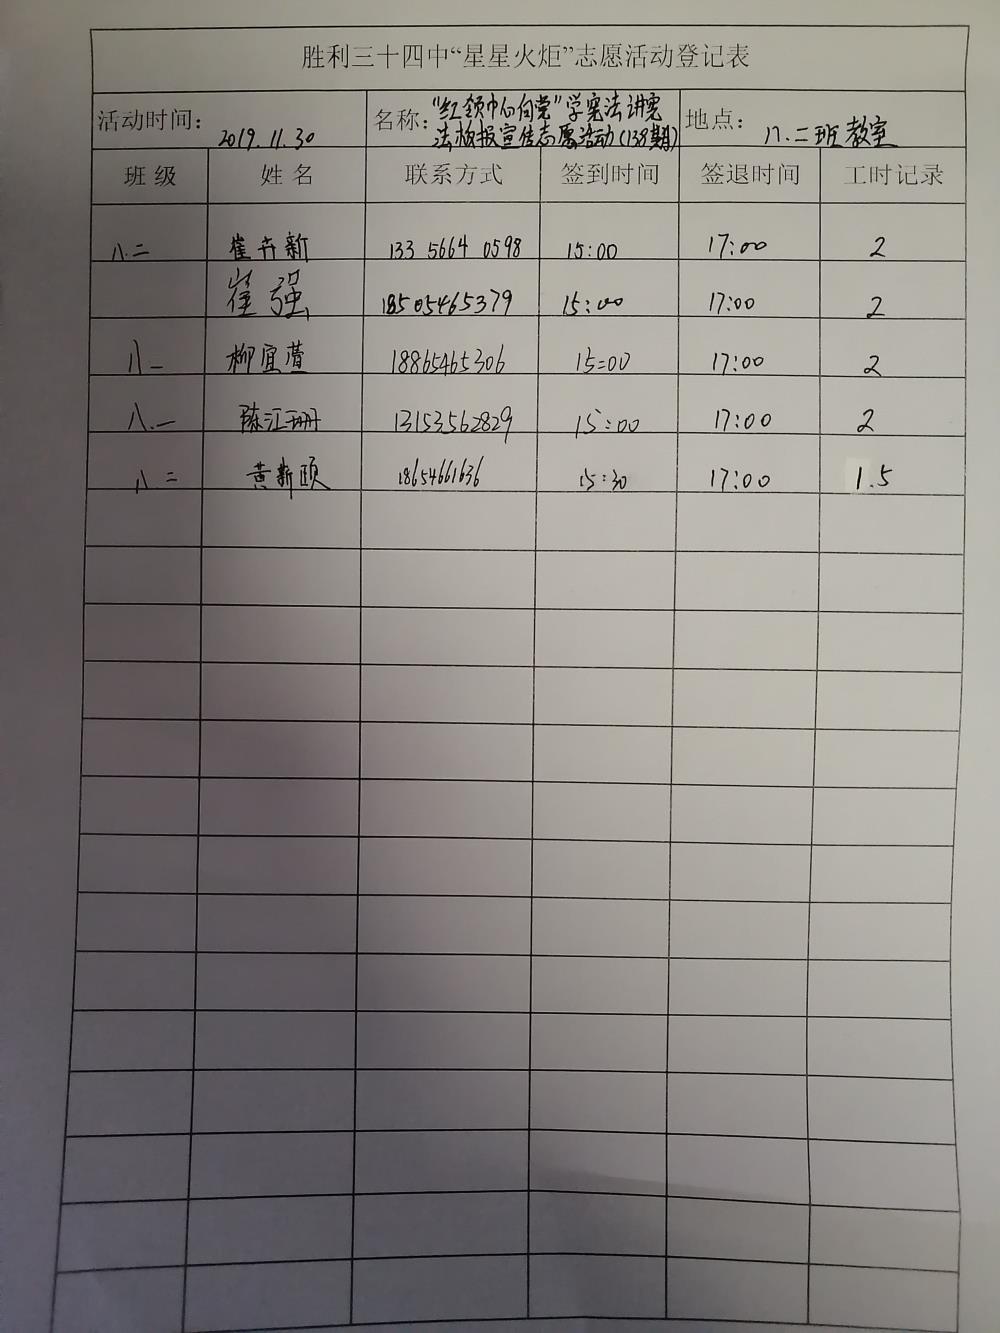 胜利三十四中“星星火炬”志愿活动登记表
活动时间： 2019.11.30 名称： “红领巾心向党”学宪法讲宪法板报宣传志愿活动(138期) 地点： 八.二班教室
班 级 姓 名 联系方式 签到时间 签退时间 工时记录
八.二 崔卉新 133 5664 0598 15:00 17:00 2
崔强 18505465379 15:00 17:00 2
八一 柳宜萱 18865465306 15:00 17:00 2
八.一 陈江珊 13153562829 15:00 17:00 2
八二 黄新颐 18654661636 15:30 17:00 1.5